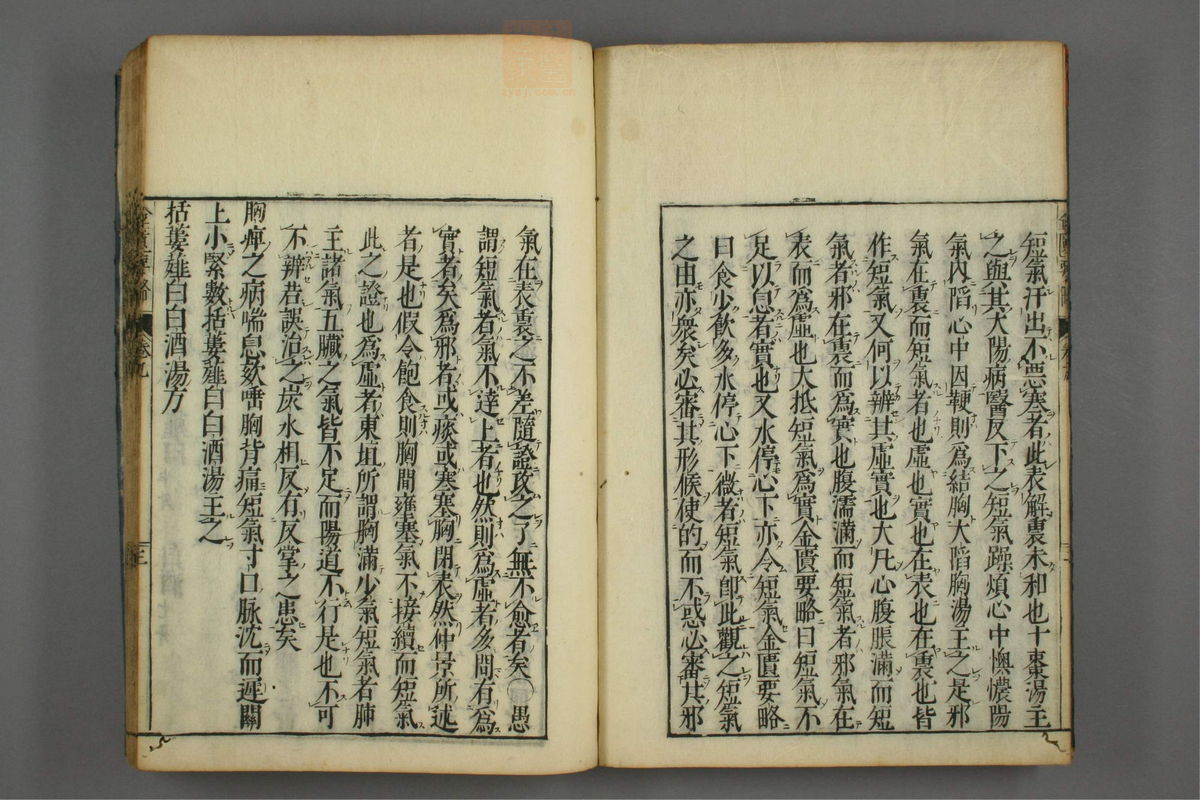 短氣汗出不惡寒者此表解裏未和也十棗湯主
之與其大陽病醫反下之短氣躁煩心中懊憹陽
氣內陷心中因鞕則為結胸大陷胸湯主之是邪
氣在裏而短氣者也虛也實也在表也在裏也皆
作短氣又何以辨其虛實也大凡心腹脹滿而短
氣者邪在裏而為實也腹濡滿而短氣者邪氣在
表而為虛也大抵短氣為實金匱要略曰短氣不
足以息者實也又水停心下亦令短氣金匱要略
曰食少飲多水停心下微者短氣即此觀之短氣
之由亦衆矣必審其形候使的而不惑必審其邪
氣在表裏之不差隨證攻之了無不愈者矣○愚
謂短氣者氣不達上者也然則為虛者多間有為
實者矣為邪者或痰或寒塞胸閉表然仲景所述
者是也假令飽食則胸間壅塞氣不接續而短氣
此之證也為虛者東垣所謂胸滿少氣短氣者肺
主諸氣五臟之氣皆不足而陽道不行是也不可
不辨若誤治之炭水相反有反掌之患矣
胸痺之病喘息欬唾胸背痛短氣寸口脉沈而遲關
上小緊數括蔞薤白白酒湯主之
括蔞薤白白酒湯方